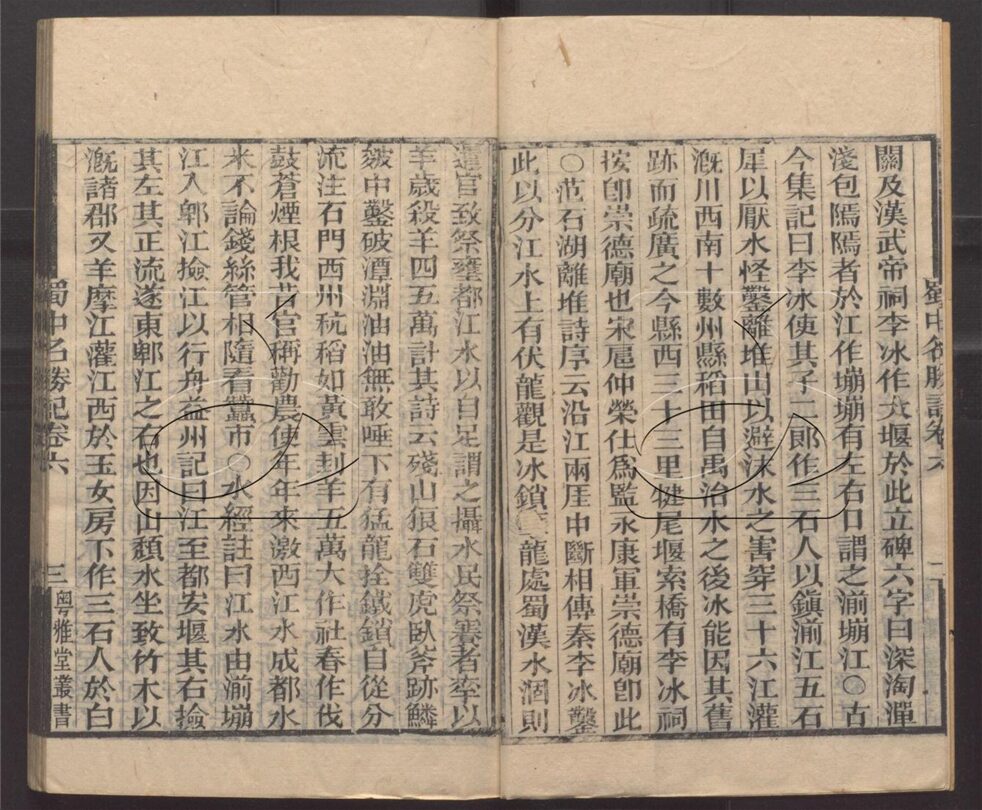 關及漢武帝祠李冰作大堰於此立碑六字曰深淘潬
淺包隔隔者於江作塴塴有左右口謂之湔塴江〇古
今集記曰李冰使其子二郎作三石人以鎮湔江五石
犀以厭水怪鑿離堆山以避沫水之害穿三十六江灌
溉川西南十數州縣稻田自禹治水之後冰能因其舊
跡而疏廣之今縣西三十三里犍尾堰索橋有李冰祠
按卽崇德廟也宋扈仲榮仕爲監永康軍崇德廟卽此
〇范石湖離堆詩序云沿江兩厓中斷相傳秦李冰鑿
此以分江水上有伏龍觀是冰鎖龍處蜀漢水涸則
遣官致祭壅都江水以自足謂之攝水民祭賽者率以
羊歲殺羊四五萬計其詩云殘山狠石雙虎臥斧跡鱗
皴中鑿破潭淵油油無敢唾下有猛龍拴鐵鎖自從分
流注石門西州秔稻如黃雲刲羊五萬大作社春作伐
鼓蒼煙根我昔官稱勸農使年年來激西江水成都水
米不論錢絲管相隨看蠶市〇水經註曰江水由湔塴
江入郫江撿江以行舟益州記曰江至都安堰其右撿
其左其正流遂東郫江之右也因山頹水坐致竹木以
溉諸郡又羊摩江灌江西於玉女房下作三石人於白
蜀中名勝記卷六
二
蜀中名勝記卷六
三
粵雅堂叢書